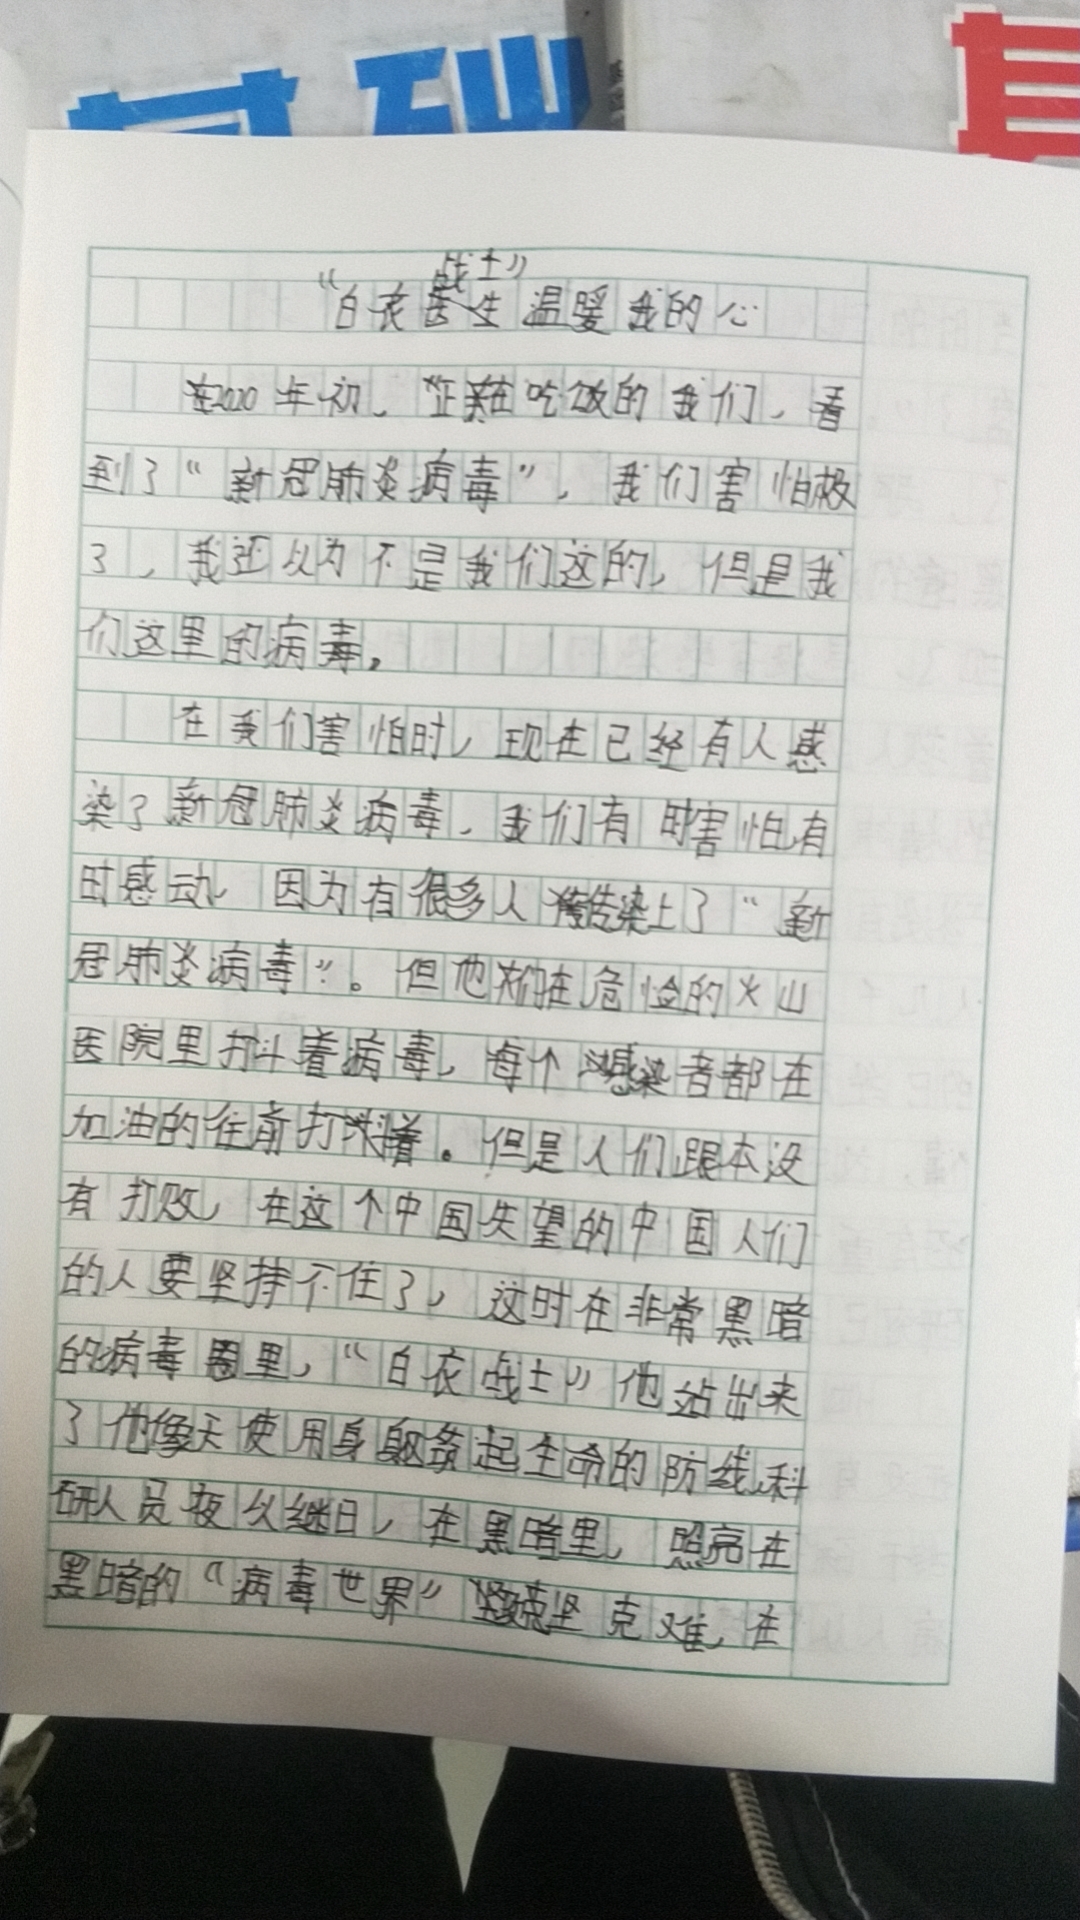 战士”
“白衣医生温暖我的心
在2020年初，正在吃饭的我们，看
到了“新冠肺炎病毒”，我们害怕极
了，我还以为不是我们这的，但是我
们这里的病毒，
在我们害怕时，现在已经有人感
染了新冠肺炎病毒，我们有时害怕有
时感动，因为有很多人传染上了“新
冠肺炎病毒”。但他们在危险的火山
医院里打斗着病毒，每个感染者都在
加油的往前打着。但是人们跟本没
有打败，在这个中国失望的中国人们
的人要坚持不住了，这时在非常黑暗
的病毒圈里，“白衣战士”他站出来
了他像天使用身躯筑起生命的防线，科
研人员夜以继日，在黑暗里，照亮在
黑暗的“病毒世界”坚克难，在